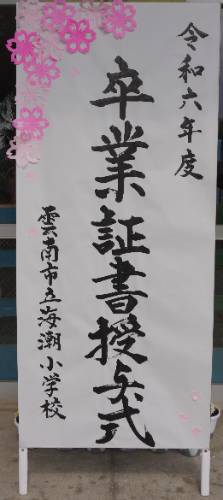 令和六年度
卒業証書授与式
雲南市立海潮小学校